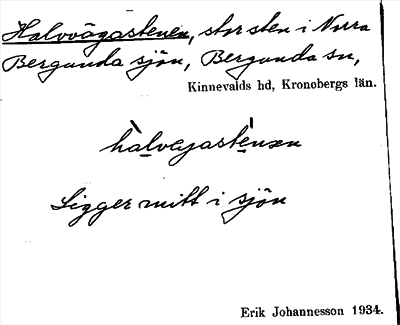 Halvvägastenen, stor sten i Norra
Bergunda sjön, Bergunda sn,
Kinnevalds hd, Kronobergs län.
Ligger mitt i sjön
Erik Johannesson 1934.